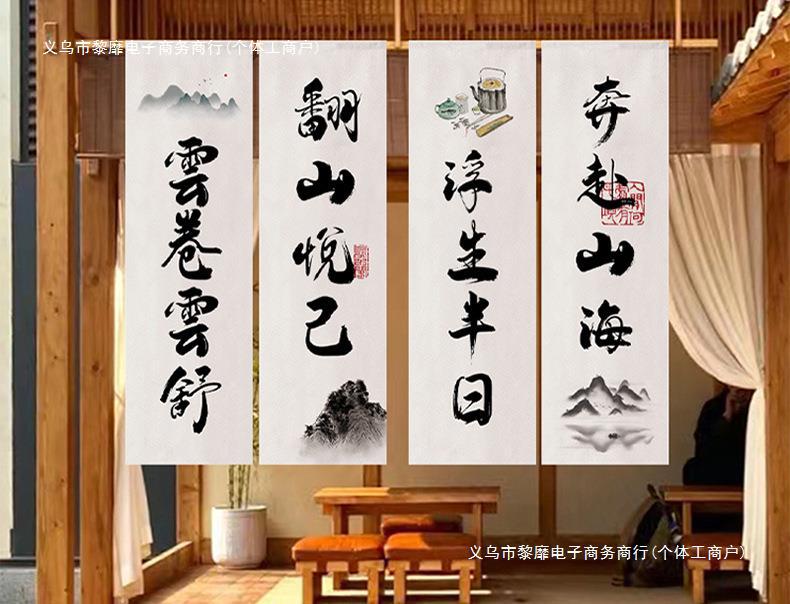 义乌市黎靡电子商务商行(个体工商户)
雲卷雲舒
翻山悦己
浮生半日
奔赴山海
义乌市黎靡电子商务商行(个体工商户)